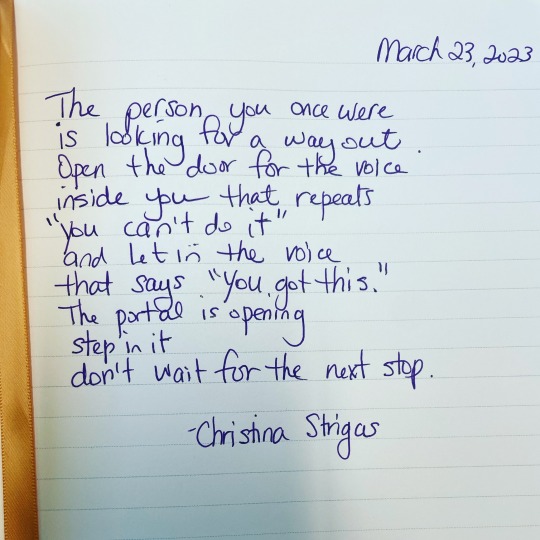 March 23, 2023
The person you once were
is looking for a way out.
Open the door for the voice
inside you that repeats
"you can't do it"
and let in the voice
that says "You got this."
The portal is opening
step in it
don't wait for the next stop.
-Christina Strigas